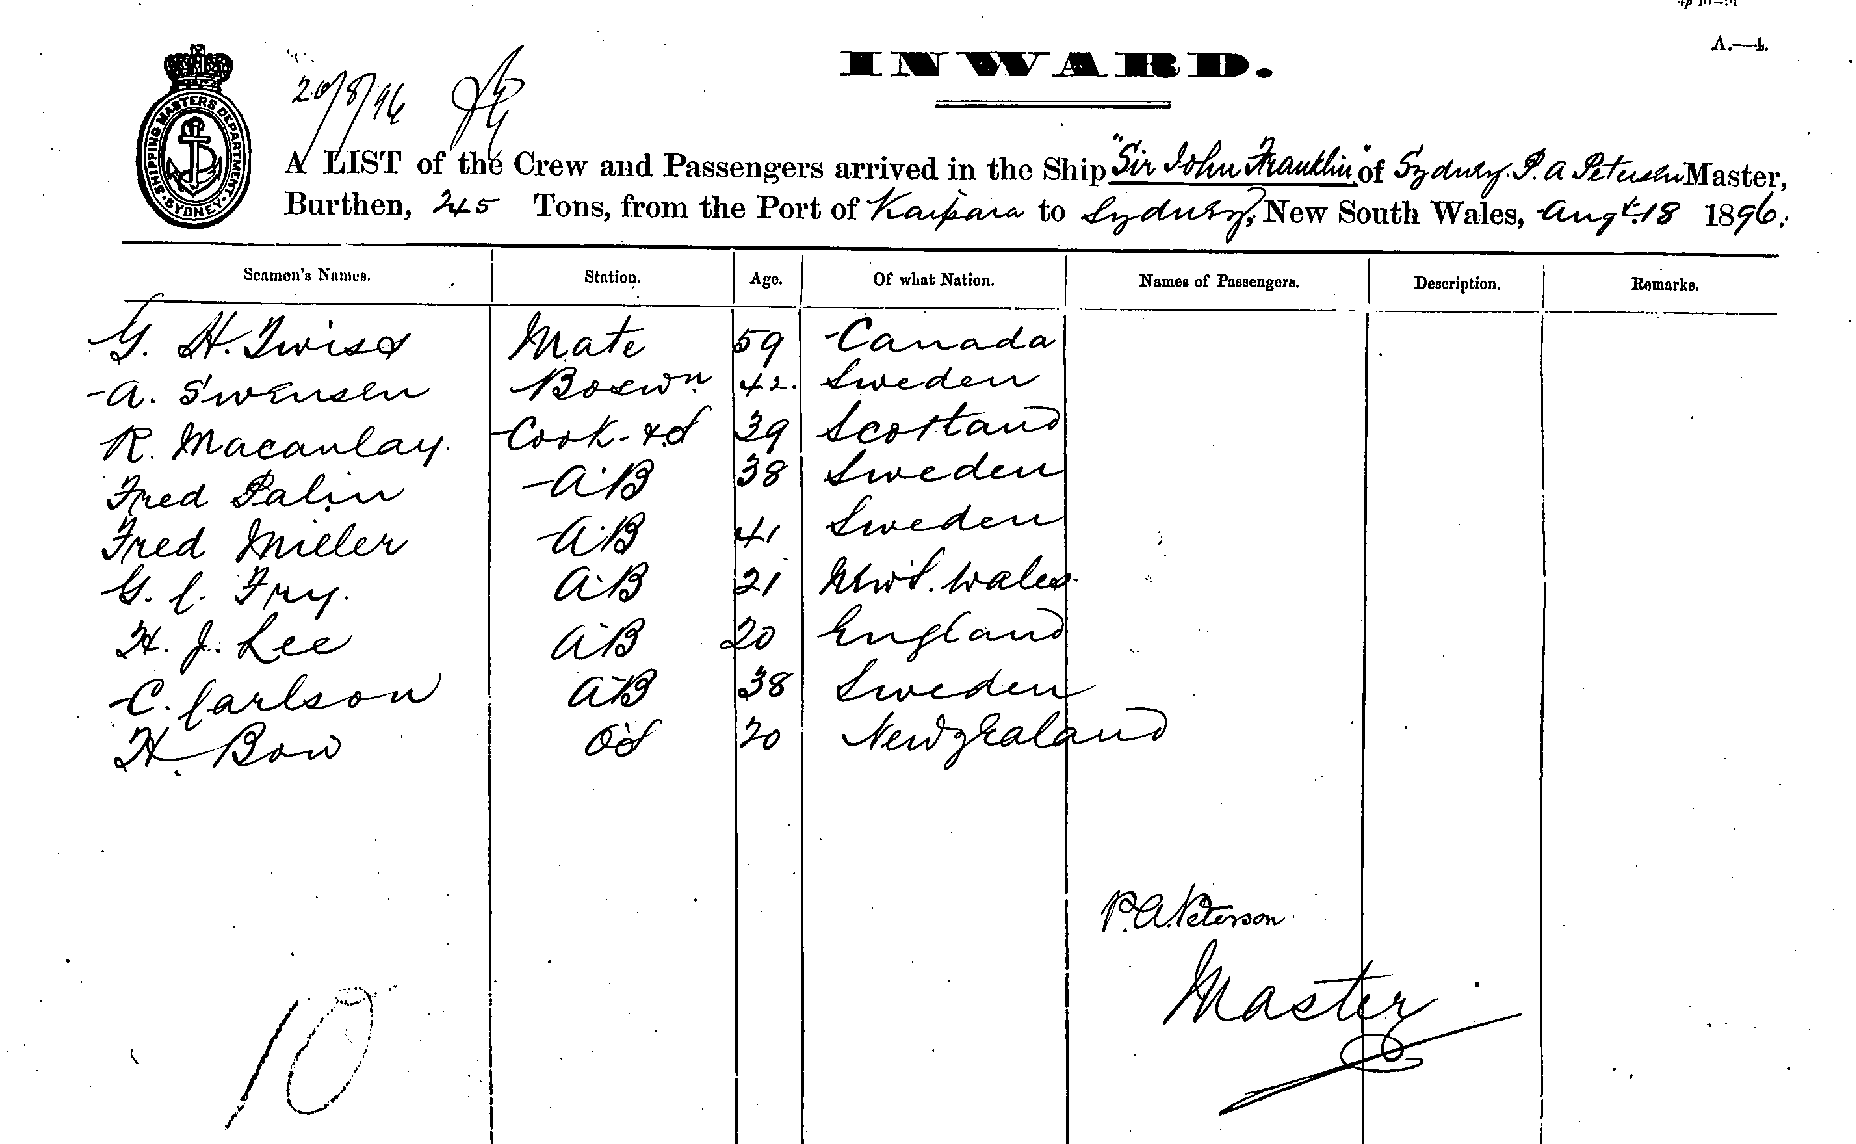 A.—4.
INWARD.
SHIPPING MASTERS DEPARTMENT SYDNEY
20/8/96
A LIST of the Crew and Passengers arrived in the Ship "Sir John Franklin" of Sydney. P. A Petersen Master,
Burthen, 245 Tons, from the Port of Kaipara to Sydney, New South Wales, Augt. 18 1896.
Seamen's Names. Station. Age. Of what Nation. Names of Passengers. Description. Remarks.
G. H. Mate 59 Canada
A. Swensen Boswn. 42. Sweden
R. Macaulay. Cook & S 39 Scotland
Fred Palin AB 38 Sweden
Fred Miller AB 41 Sweden
G. C. Fry. AB 21 New S. Wales
H. J. Lee AB 20 England
C. Carlson AB 38 Sweden
H. Bow OS 20 New Zealand
P. A. Peterson
Master
10